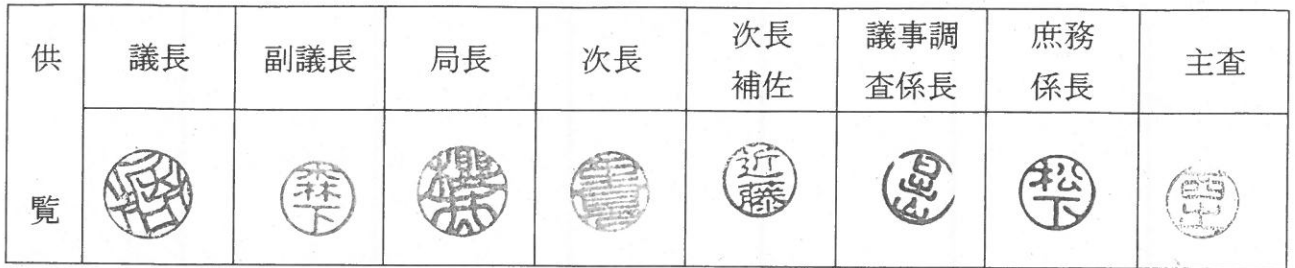 供覧
議長
副議長
局長
次長
次長
補佐
議事調
査係長
庶務
係長
主査
森下
近藤
松下